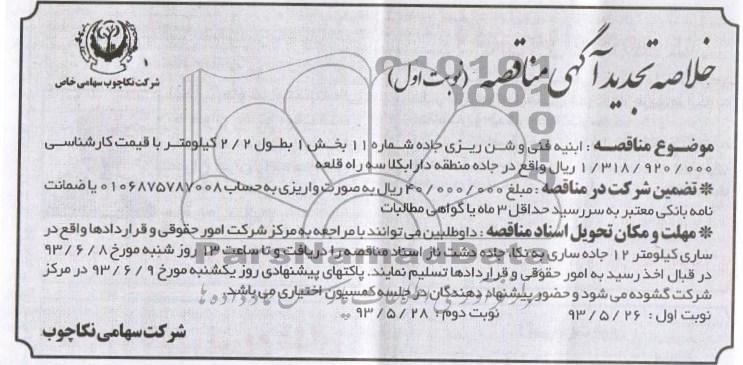 شرکت نکاچوب سهامی خاص
خلاصه تجدید آگهی مناقصه (نوبت اول)
موضوع مناقصه : ابنیه فنی و شن ریزی جاده شماره ۱۱ بخش ۱ بطول ۲/۲ کیلومتر با قیمت کارشناسی
۱/۳۱۸/۹۲۰/۰۰۰ ریال واقع در جاده منطقه دارابکلا سه راه قلعه
* تضمین شرکت در مناقصه : مبلغ ۴۰/۰۰۰/۰۰۰ ریال به صورت واریزی به حساب ۰۱۰۶۸۷۵۷۸۷۰۰۸ یا ضمانت
نامه بانکی معتبر به سررسید حداقل ۳ ماه یا گواهی مطالبات
* مهلت و مکان تحویل اسناد مناقصه : داوطلبین می توانند با مراجعه به مرکز شرکت امور حقوقی و قراردادها واقع در
ساری کیلومتر ۱۲ جاده ساری به نکا، جاده دشت ناز اسناد مناقصه را دریافت و تا ساعت ۱۳ روز شنبه مورخ ۹۳/۶/۸
در قبال اخذ رسید به امور حقوقی و قراردادها تسلیم نمایند. پاکتهای پیشنهادی روز یکشنبه مورخ ۹۳/۶/۹ در مرکز
شرکت گشوده می شود و حضور پیشنهاد دهندگان در جلسه کمسیون اختیاری می باشد.
نوبت اول : ۹۳/۵/۲۶ نوبت دوم : ۹۳/۵/۲۸
شرکت سهامی نکاچوب
ParsNamadData